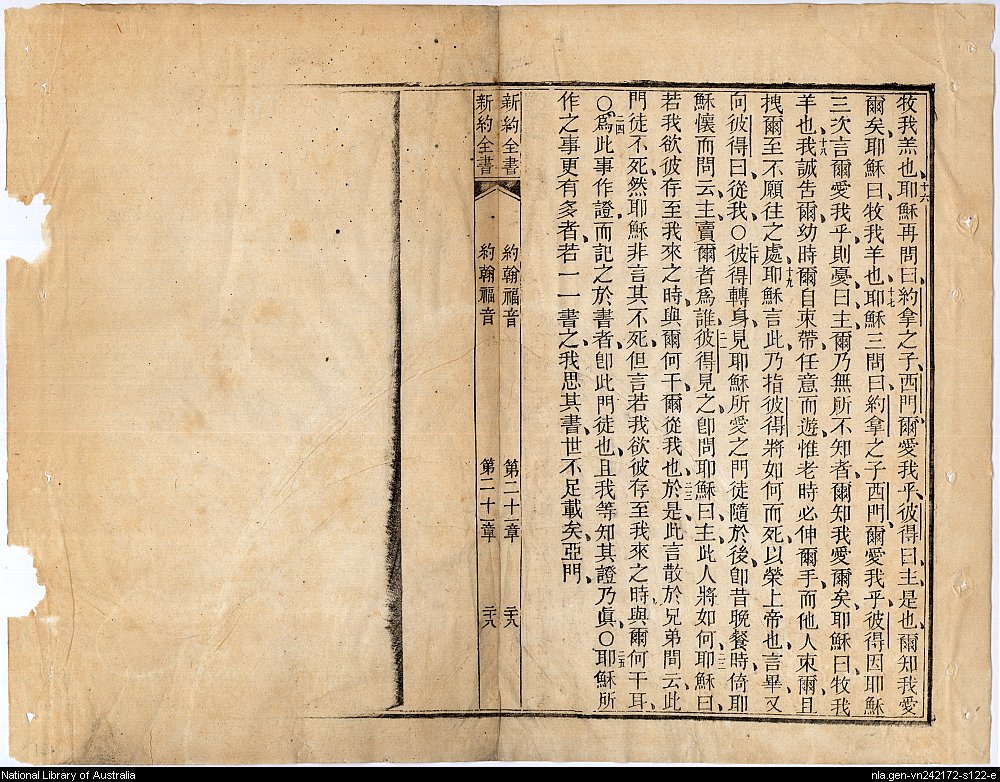 牧我羔也十六耶穌再問曰約拿之子西門爾愛我乎彼得曰主是也爾知我愛
爾矣耶穌曰牧我羊也十七耶穌三問曰約拿之子西門爾愛我乎彼得因耶穌
三次言爾愛我乎則憂曰主爾乃無所不知者爾知我愛爾矣耶穌曰牧我
羊也十八我誠告爾爾幼時爾自束帶任意而遊惟老時必伸爾手而他人束爾且
拽爾至不願往之處十九耶穌言此乃指彼得將如何而死以榮上帝也言畢又
向彼得曰從我○二十彼得轉身見耶穌所愛之門徒隨於後卽昔晚餐時倚耶
穌懷而問云主賣爾者爲誰二一彼得見之卽問耶穌曰主此人將如何二二耶穌曰
若我欲彼存至我來之時與爾何干爾從我也二三於是此言散於兄弟間云此
門徒不死然耶穌非言其不死但言若我欲彼存至我來之時與爾何干耳
○二四爲此事作證而記之於書者卽此門徒也且我等知其證乃眞○二五耶穌所
作之事更有多者若一一書之我思其書世不足載矣亞門
新約全書 約翰福音 第二十一章 二十八
新約全書 約翰福音 第二十一章 二十八
National Library of Australia
nla.gen-vn242172-s122-e